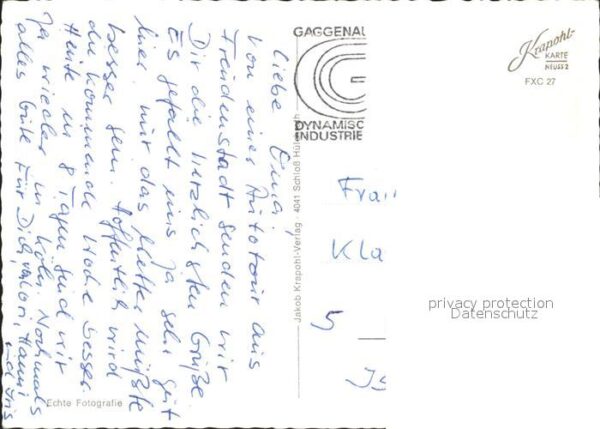 Liebe Oma,
Von einer Autotour aus
Freudenstadt senden wir
Dir die herzlichsten Grüße.
Es gefällt uns ja sehr gut
hier. nur das Wetter müßte
besser sein. Hoffentlich wird
die kommende Woche besser.
Heute in 8 Tagen sind wir
ja wieder in Köln. Nochmals
alles Gute für Dich, von
Hanni
und Iris
Echte Fotografie
Jakob Krapohl-Verlag - 4041 Schloß Hülchrath
GAGGENAU
DYNAMISC
INDUSTRIE
Krapohl-
KARTE
NEUSS 2
FXC 27
Frau
Kla
5
privacy protection
Datenschutz